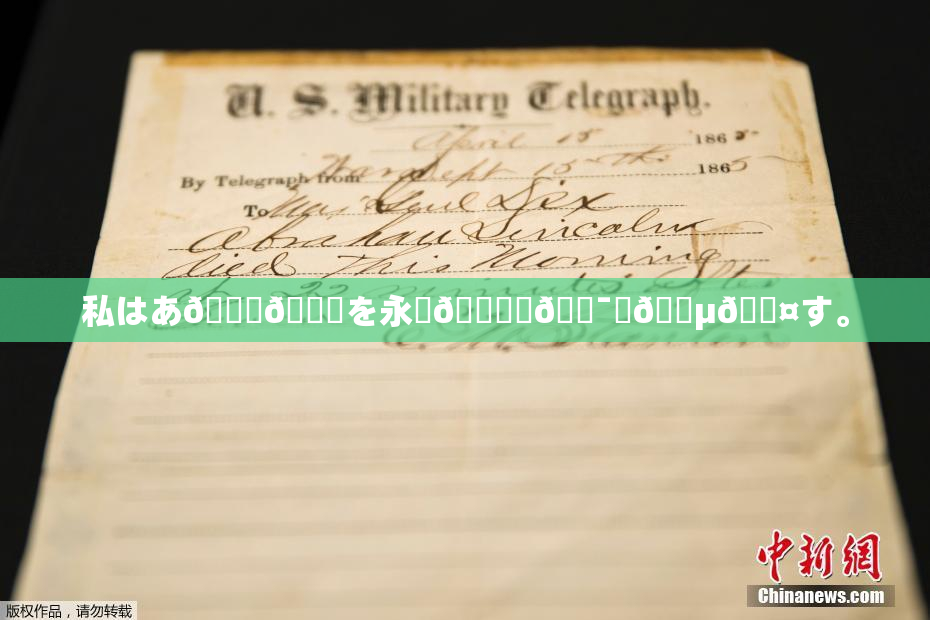 U. S. Military Telegraph.
April 15 1865
By Telegraph from War Dept 15th 1865
To Maj Genl Dix
Abraham Lincoln
died This Morning
22 minutes after
E. M. Stanton
私はあð を永 ð ð ¯ ð µð ¤す。
中新网
Chinanews.com
版权作品，请勿转载